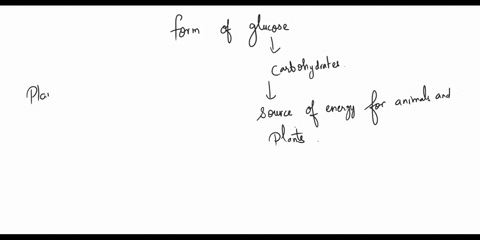 form of glucose
↓
Carbohydrates.
↓
Pla
Source of energy for animals and
Plants.